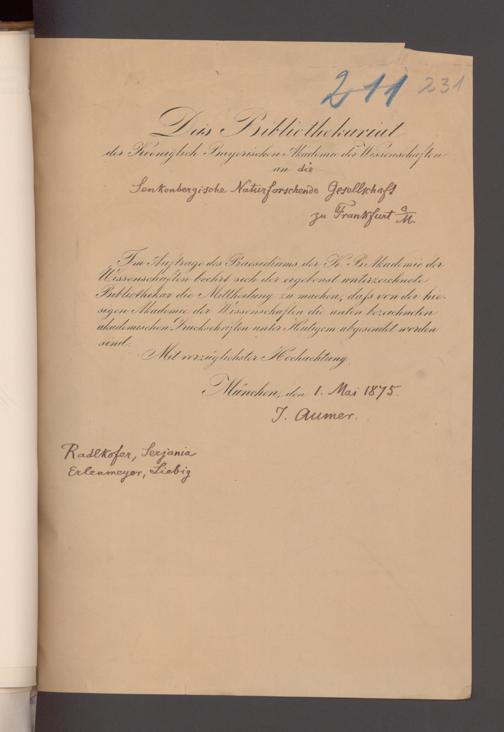 211 231
Das Bibliothekariat
der Koeniglich Bayerischen Akademie der Wissenschaften
an die
Senkenbergische Naturforschende Gesellschaft
zu Frankfurt a/M.
Im Auftrage des Praesidiums der K. B. Akademie der
Wissenschaften beehrt sich der ergebenst unterzeichnete
Bibliothekar die Mittheilung zu machen, dass von der hie-
sigen Akademie der Wissenschaften die unten bezeichneten
akademischen Druckschriften unter Heutigem abgesendet worden
sind.
Mit vorzüglichster Hochachtung.
München, den 1. Mai 1875.
J. Aumer.
Radlkofer, Serjania
Erlenmeyer, Liebig